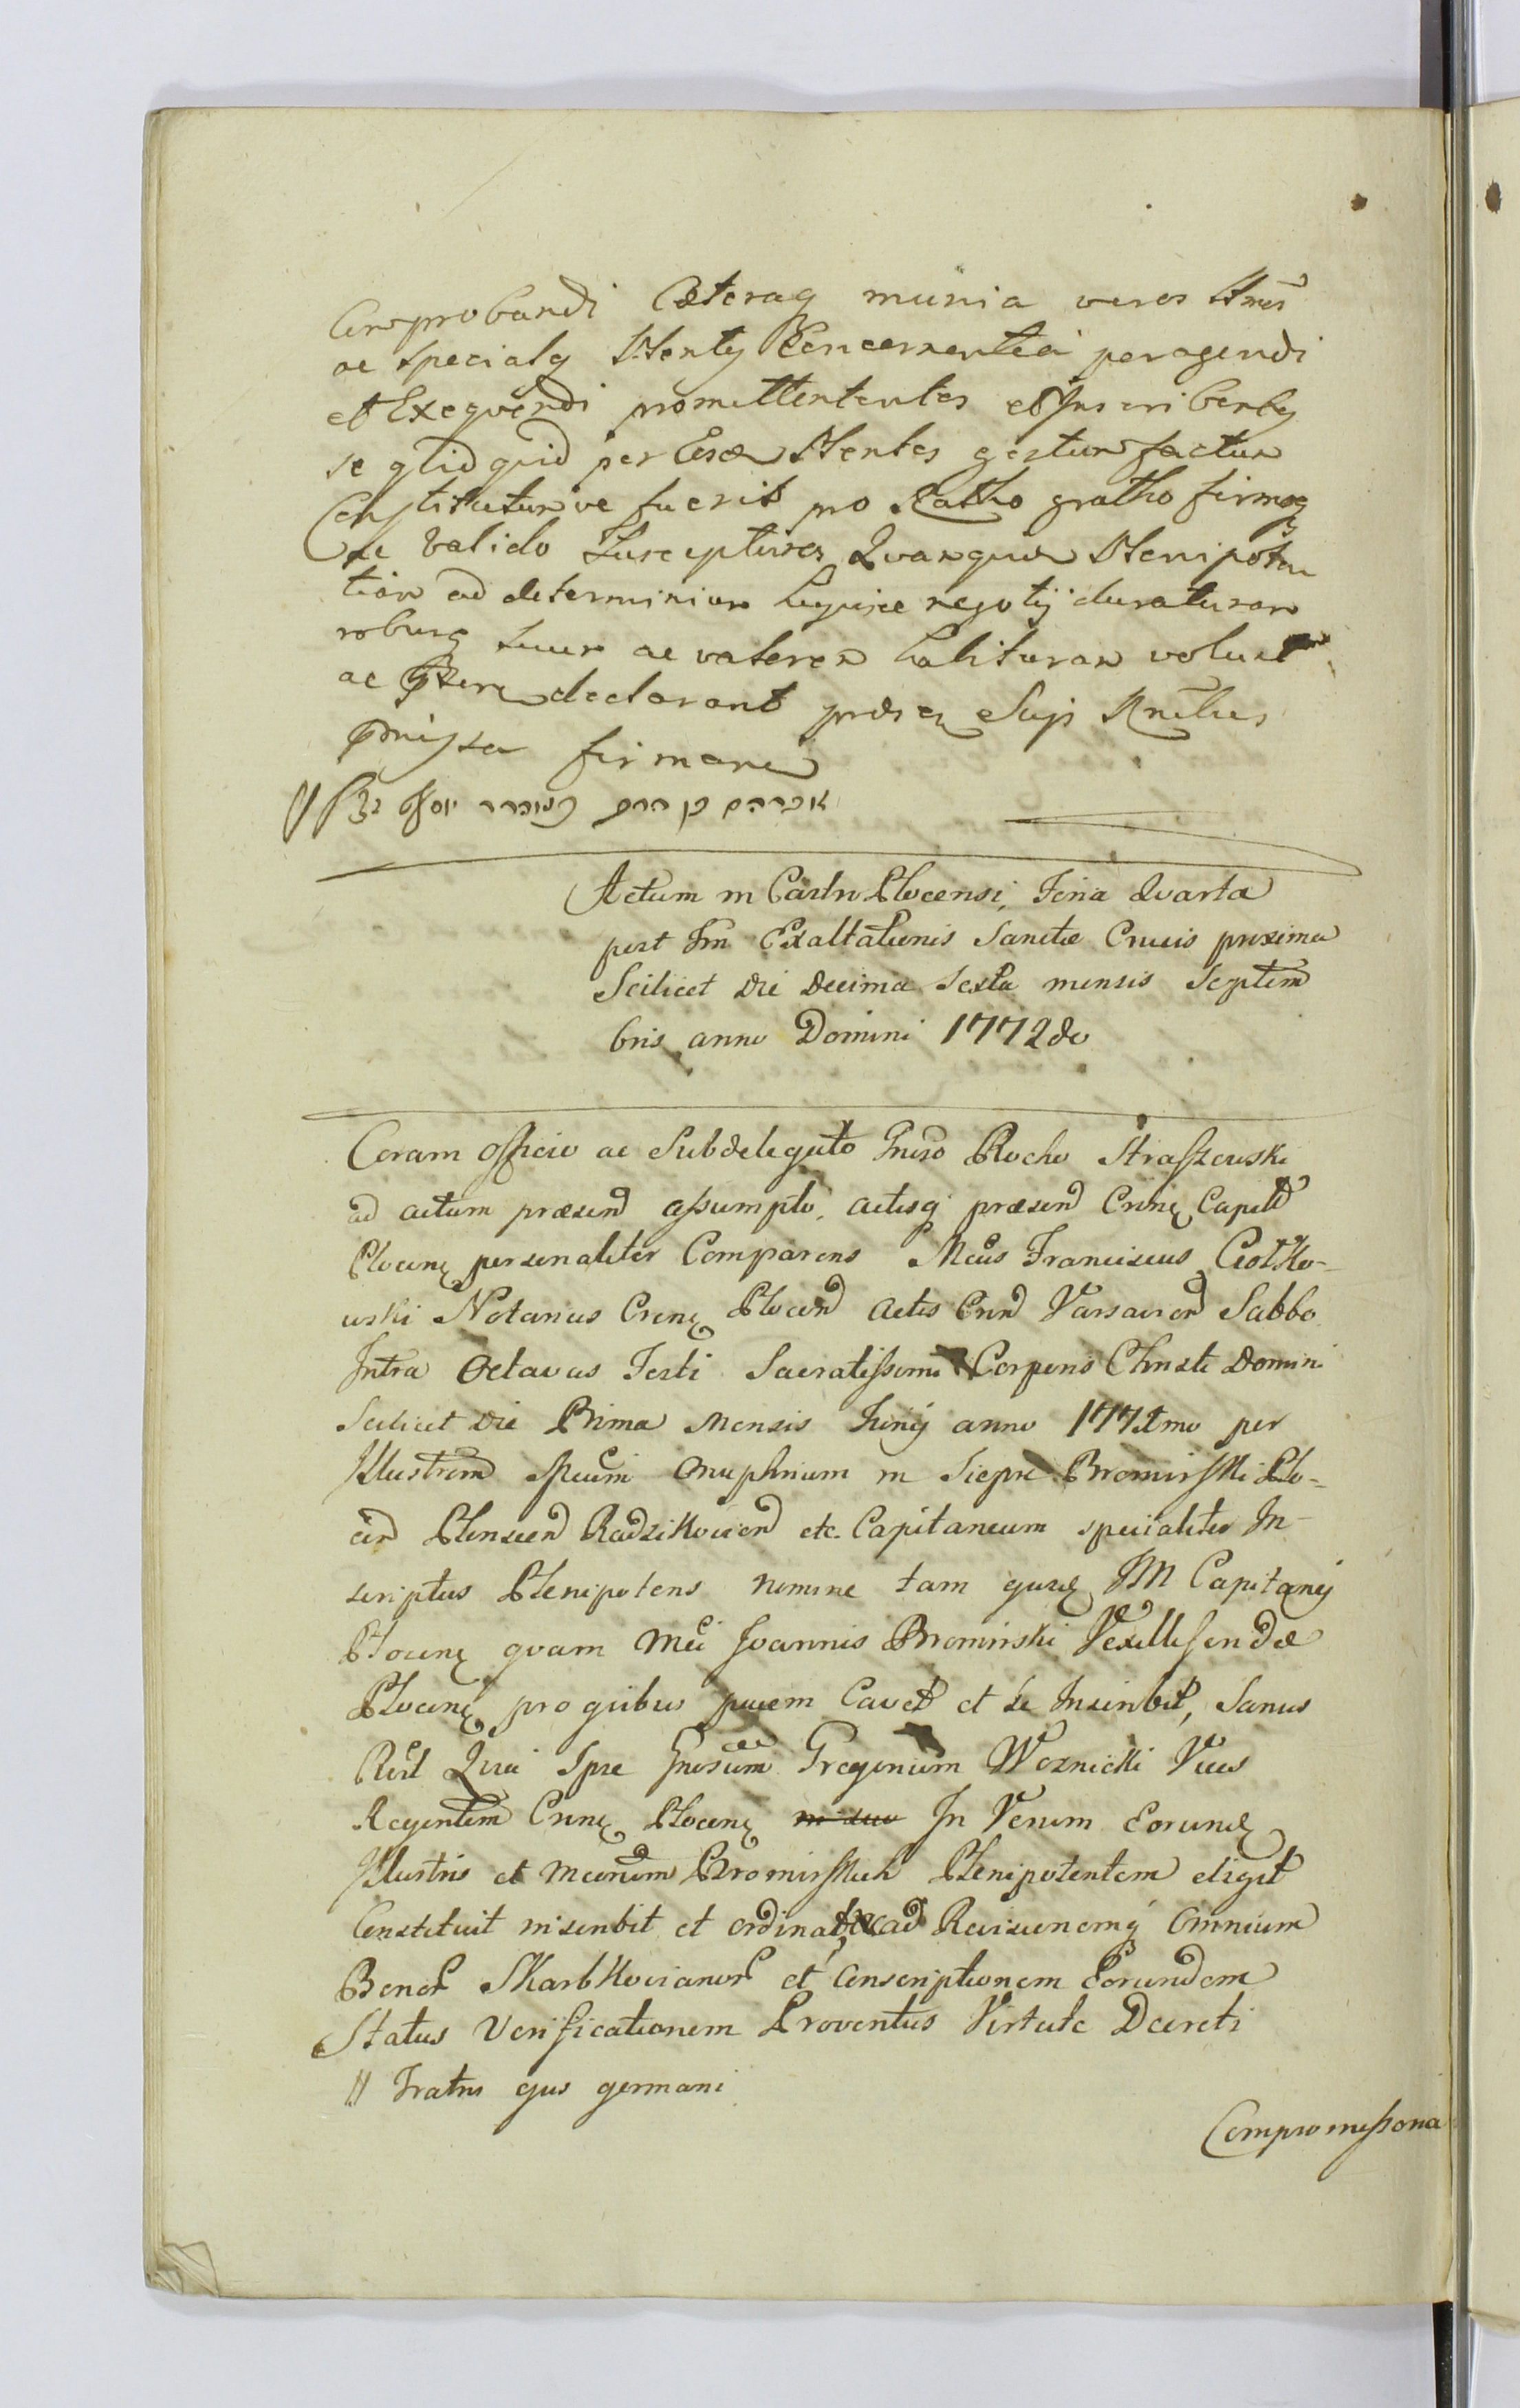 Comprobandi Cæteraq munia veros Plnes
ac specialq Plentes Concernentia peragendi
et Exequendi promittententes et Inscribentes
se qtidquid per Eosd Plentes gestum factum
Constitutumve fuerit pro Ratho gratho firmoq
ac Valido Suscepturos Quamquidem Plenipoten
tiam ad determinium hujusce negotij duraturam
roburq suum ac valorem habituram volunt
ac declarant Sup
præmissa firmare
Actum in Castro Plocensi, Feria Quarta
post Fm Exaltationis Sanctæ Crucis proxima
Scilicet Die Decima Sexta mensis Septem
bris anno Domini 1772do
Coram Officio ac Subdelegato Gnrso Rocho Straszewski
ad actum præsend assumpto, actisq præsend Crine Capitl
Plocene personaliter Comparens Mcus Franciscus Ciotko-
wski Notarius Crene Plocend actis Crend Varsaviend Sabbo
Intra Octavas Festi Sacratissimi Corporis Christi Domini
Scilicet Die Prima Mensis Junij anno 1771mo per
Illustrem Mcum Onuphrium in Siepre Bromirski Plo-
cen Plonscen Radzikovien etc. Capitaneum specialiter In-
scriptus Plenipotens nomine tam ejusd JM Capitanej
Plocene quam Mci Joannis Bromirski Vexilliferidæ
Plocene, pro quibus pacem Cavet et se Inscribit, Sanus
Rect Quia Ipse Gnrosum Gregorium Woznicki Vices
Regentem Crene Plocene in suo In Verum Eorund
Illustris et Mcorum Bromirskich Plenipotentem elegit
Constituit inscribit et ordinat ad Revisionemq Omnium
Bonor Skarbkovianor et Conscriptionem Eorundem
Status Verificationem Proventus Virtute Decreti
// Fratris ejus germani
Compromissoria